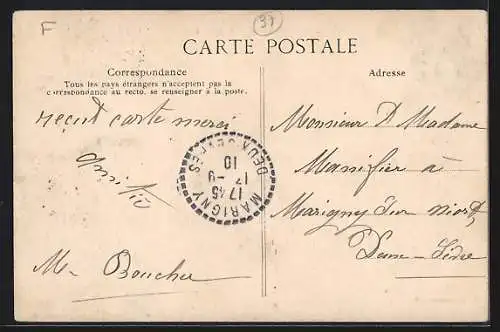 F
37
CARTE POSTALE
Correspondance
Tous les pays étrangers n'acceptent pas la
correspondance au recto, se renseigner à la poste.
reçut carte merci
Amitié
M. Boucher
MARIGNY
17 45
17 - 9
10
DEUX-SEVRES
Adresse
Monsieur & Madame
Manifier à
Marigny sur Niort
Deux-Sèvre